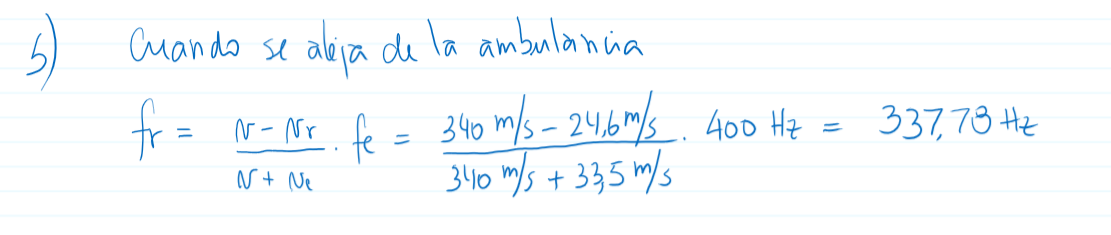 b) Cuando se aleja de la ambulância
fr = (v - vr)/(v + ve) · fe = (340 m/s - 24,6 m/s)/(340 m/s + 33,5 m/s) · 400 Hz = 337,78 Hz